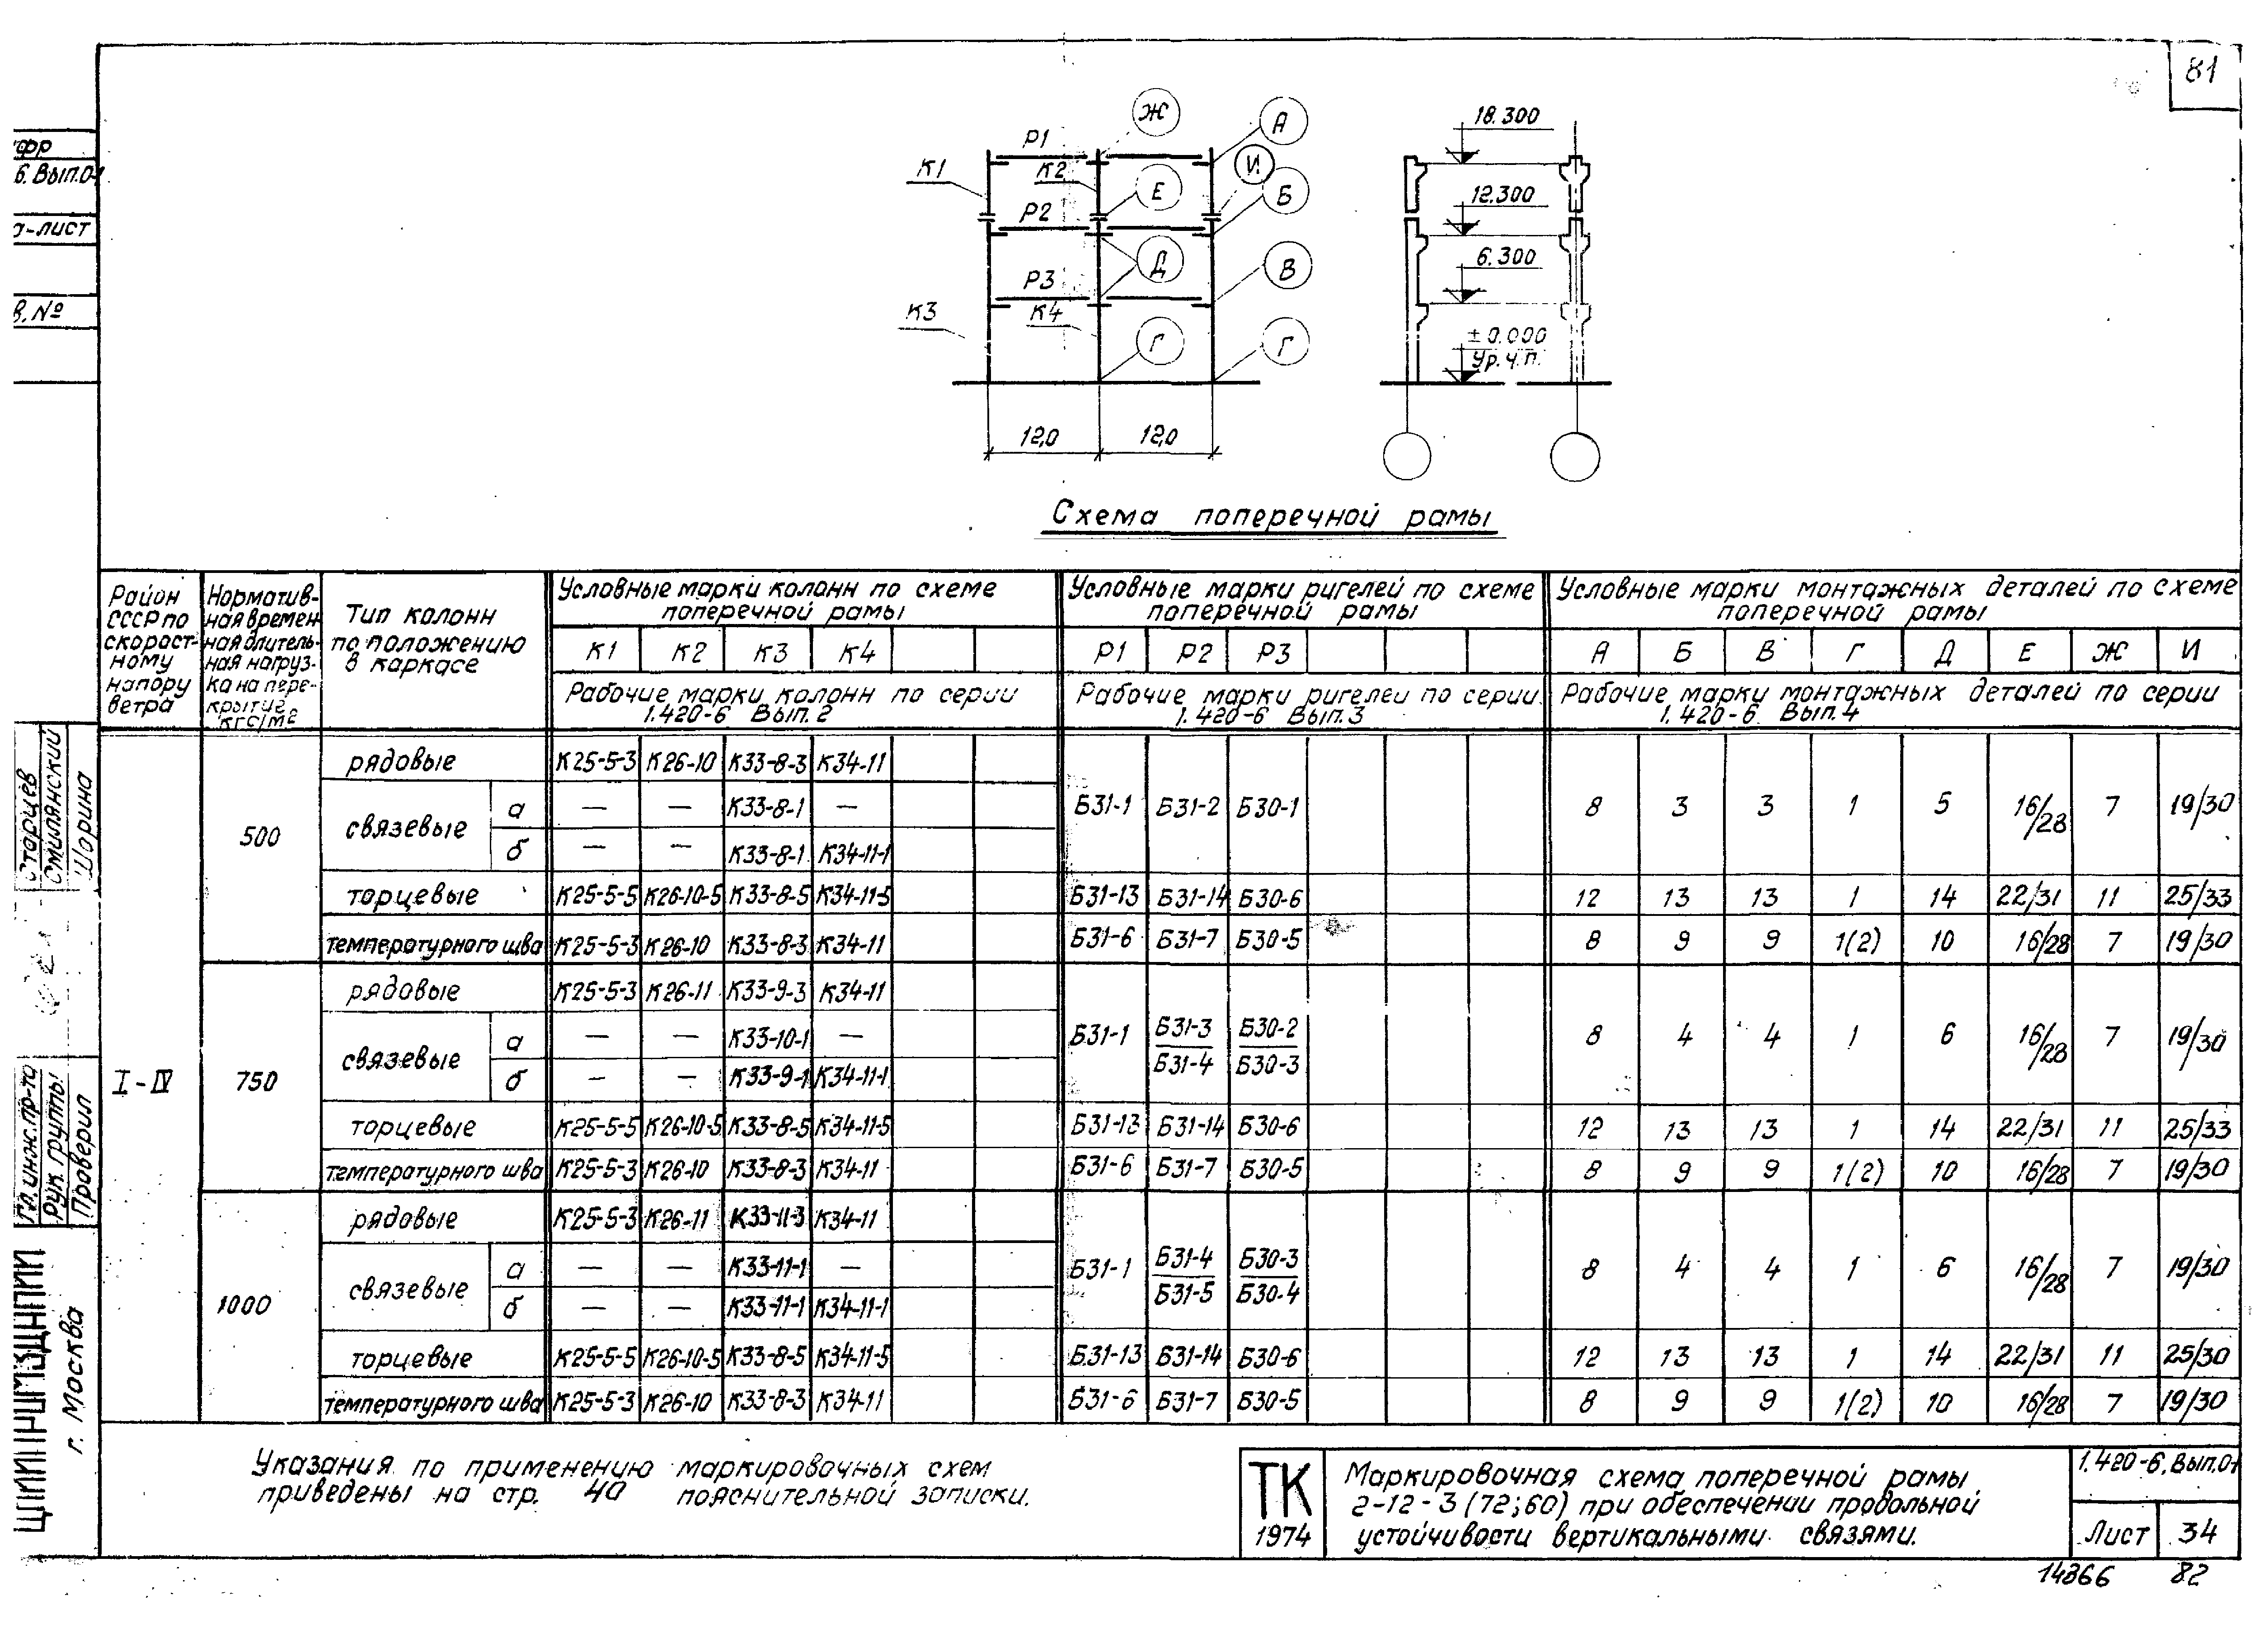 81
фр
6. Вып.0-1
а-лист
в. №
Ж
А
И
Е
Б
Д
В
Г
Г
К1
Р1
К2
Р2
К3
Р3
К4
12,0 12,0
18.300
12.300
6.300
± 0.000
Ур.ч.п.
Схема поперечной рамы
Район СССР по скоростному напору ветра
Нормативная временная длительная нагрузка на перекрытие кгс/м2
Тип колонн по положению в каркасе
Условные марки колонн по схеме поперечной рамы
Условные марки ригелей по схеме поперечной рамы
Условные марки монтажных деталей по схеме поперечной рамы
К1 К2 К3 К4 Р1 Р2 Р3 А Б В Г Д Е Ж И
Рабочие марки колонн по серии 1.420-6 Вып.2
Рабочие марки ригелей по серии 1.420-6 Вып.3
Рабочие марки монтажных деталей по серии 1.420-6 Вып.4
I-IV
500
рядовые К25-5-3 К26-10 К33-8-3 К34-11
связевые а — — К33-8-1 — Б31-1 Б31-2 Б30-1 8 3 3 1 5 16/28 7 19/30
б — — К33-8-1 К34-11-1
торцевые К25-5-5 К26-10-5 К33-8-5 К34-11-5 Б31-13 Б31-14 Б30-6 12 13 13 1 14 22/31 11 25/33
температурного шва К25-5-3 К26-10 К33-8-3 К34-11 Б31-6 Б31-7 Б30-5 8 9 9 1(2) 10 16/28 7 19/30
750
рядовые К25-5-3 К26-11 К33-9-3 К34-11
связевые а — — К33-10-1 — Б31-1 Б31-3/Б31-4 Б30-2/Б30-3 8 4 4 1 6 16/28 7 19/30
б — — К33-9-1 К34-11-1
торцевые К25-5-5 К26-10-5 К33-8-5 К34-11-5 Б31-13 Б31-14 Б30-6 12 13 13 1 14 22/31 11 25/33
температурного шва К25-5-3 К26-10 К33-8-3 К34-11 Б31-6 Б31-7 Б30-5 8 9 9 1(2) 10 16/28 7 19/30
1000
рядовые К25-5-3 К26-11 К33-11-3 К34-11
связевые а — — К33-11-1 — Б31-1 Б31-4/Б31-5 Б30-3/Б30-4 8 4 4 1 6 16/28 7 19/30
б — — К33-11-1 К34-11-1
торцевые К25-5-5 К26-10-5 К33-8-5 К34-11-5 Б31-13 Б31-14 Б30-6 12 13 13 1 14 22/31 11 25/30
температурного шва К25-5-3 К26-10 К33-8-3 К34-11 Б31-6 Б31-7 Б30-5 8 9 9 1(2) 10 16/28 7 19/30
Указания по применению маркировочных схем
приведены на стр. 40 пояснительной записки.
ТК
1974
Маркировочная схема поперечной рамы
2-12-3 (72;60) при обеспечении продольной
устойчивости вертикальными связями.
1.420-6. Вып.0-1
Лист 34
14366 82
Сторцев
Смилянский
Шорина
Гл. инж. пр-та
Рук. группы
Проверил
г. Москва